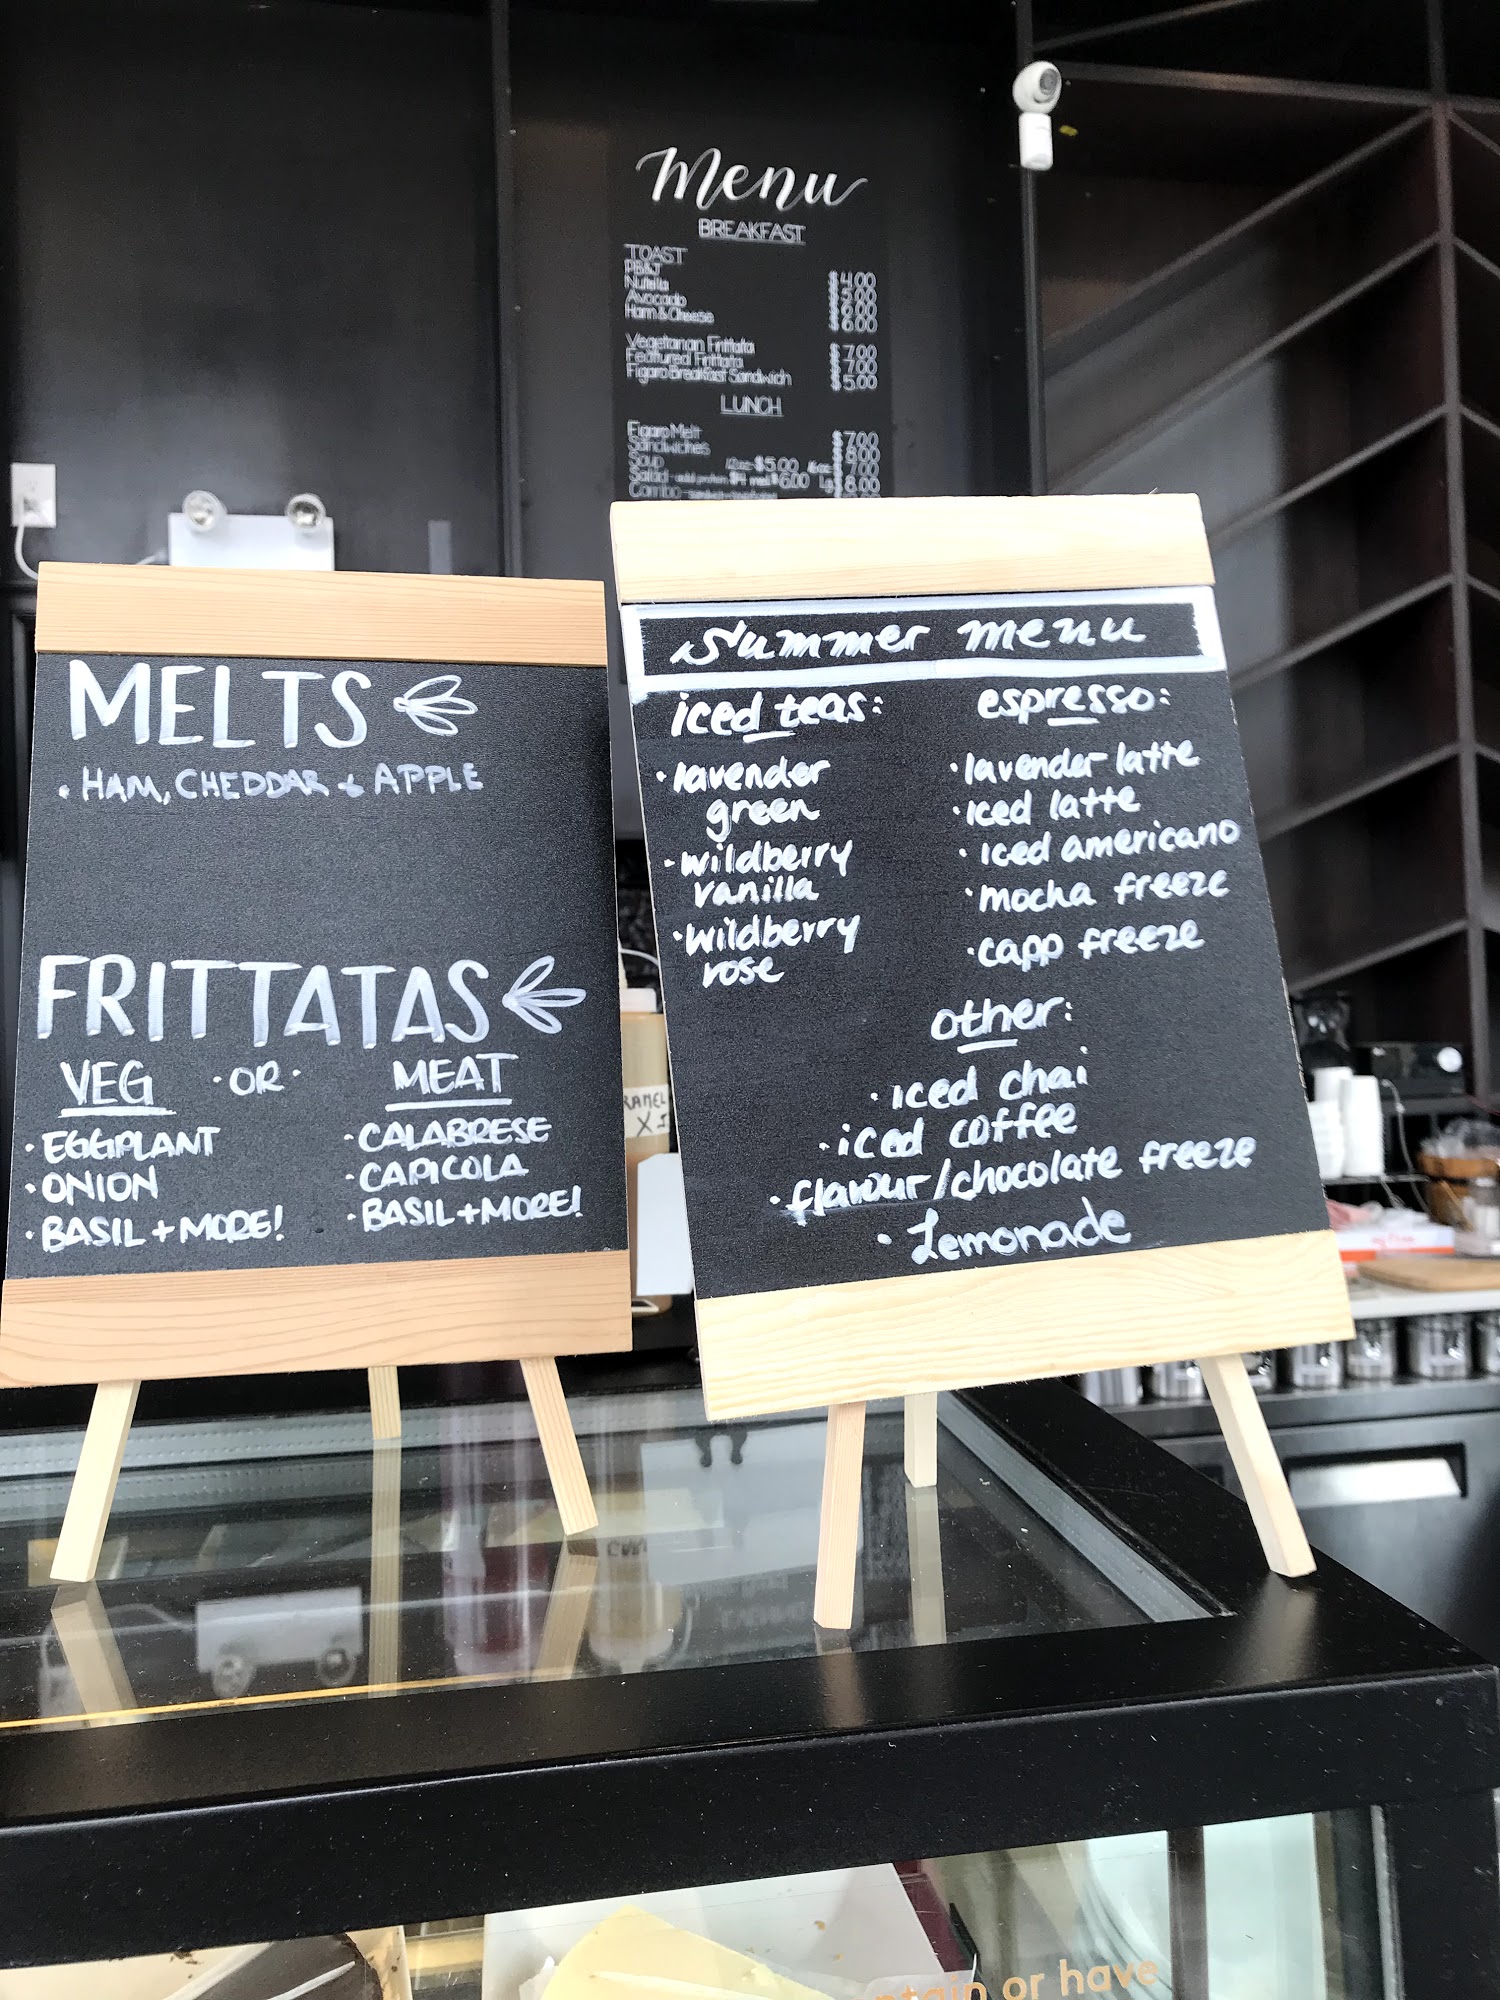 Menu
BREAKFAST
TOAST
PB&J $4.00
Nutella $5.00
Avocado $6.00
Ham & Cheese $6.00
Vegetarian Frittata $7.00
Featured Frittata $7.00
Figaro Breakfast Sandwich $5.00
LUNCH
Figaro Melt $7.00
Sandwiches $8.00
Soup 12oz $5.00 16oz $7.00
Salad - add protein $4 med $6.00 Lg $8.00
Combo
MELTS
• HAM, CHEDDAR + APPLE
FRITTATAS
VEG • OR • MEAT
• EGGPLANT
• ONION
• BASIL + MORE!
• CALABRESE
• CAPICOLA
• BASIL + MORE!
summer menu
iced teas:
• lavender
green
• wildberry
vanilla
• wildberry
rose
espresso:
• lavender latte
• iced latte
• iced americano
• mocha freeze
• capp freeze
other:
• iced chai
• iced coffee
• flavour/chocolate freeze
• Lemonade
RAMEL
or have